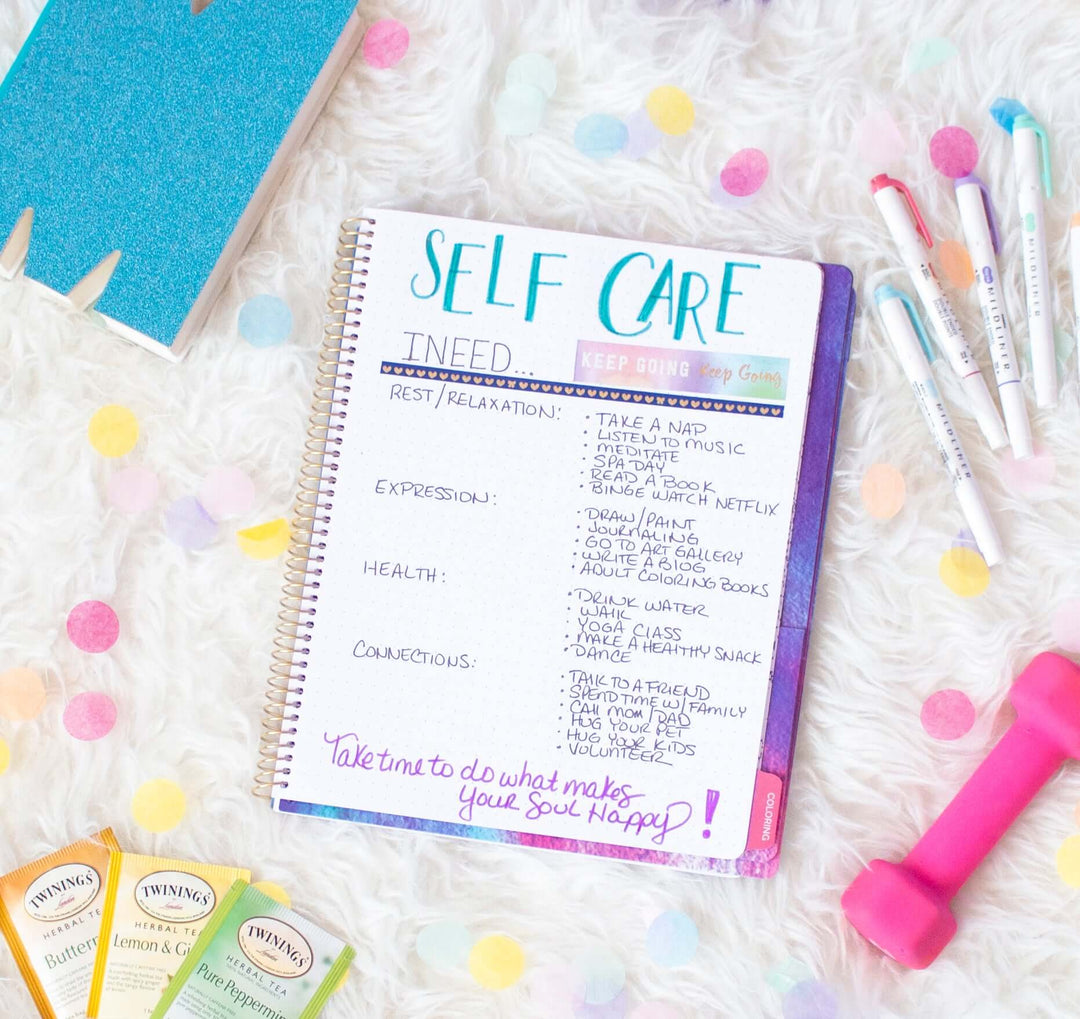 SELF CARE
I NEED...
KEEP GOING Keep Going
REST/RELAXATION:
• TAKE A NAP
• LISTEN TO MUSIC
• MEDITATE
• SPA DAY
• READ A BOOK
• BINGE WATCH NETFLIX
EXPRESSION:
• DRAW/PAINT
• JOURNALING
• GO TO ART GALLERY
• WRITE A BLOG
• ADULT COLORING BOOKS
HEALTH:
• DRINK WATER
• WALK
• YOGA CLASS
• MAKE A HEALTHY SNACK
• DANCE
CONNECTIONS:
• TALK TO A FRIEND
• SPEND TIME W/FAMILY
• CALL MOM/DAD
• HUG YOUR PET
• HUG YOUR KIDS
• VOLUNTEER
Take time to do what makes
your soul Happy!
COLORING
MILDLINER
MILDLINER
MILDLINER
MILDLINER
TWININGS
of London
HERBAL TEA
TWININGS
of London
HERBAL TEA
Lemon &
NATURALLY CAFFEINE FREE
TWININGS
of London
HERBAL TEA
100% NATURAL INGREDIENTS
Pure Peppermin
NATURALLY CAFFEINE FREE